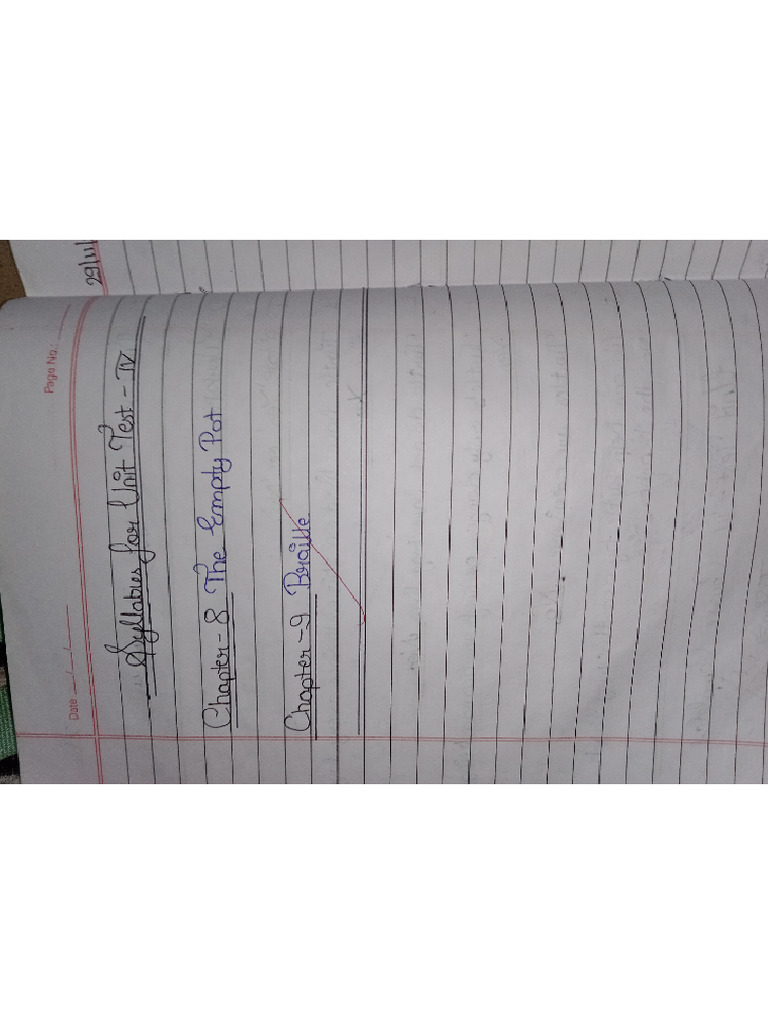 29/11/
Page No.:
Date
Syllabus for Unit Test - IV
Chapter - 8 The Empty Pot
Chapter - 9 Braille